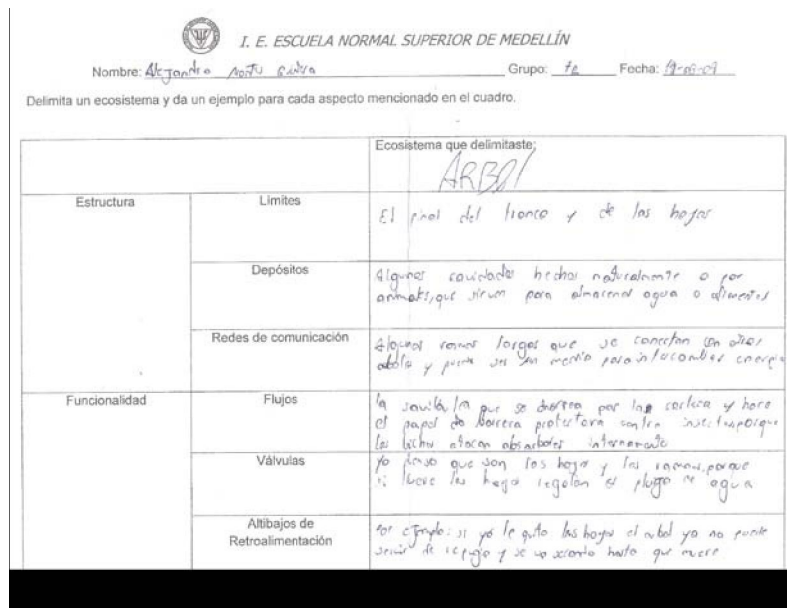 I. E. ESCUELA NORMAL SUPERIOR DE MEDELLÍN
Nombre: Alejandro Grupo: Fecha:
Delimita un ecosistema y da un ejemplo para cada aspecto mencionado en el cuadro.
Ecosistema que delimitaste:
ARBOl
Estructura
Limites
El final del tronco y de las hojas
Depósitos
Algunas cavidades hechas naturalmente o por
animales, que sirven para almacenar agua o alimentos
Redes de comunicación
Algunas ramas largas que se conectan con otros
y puede ser un medio para energia
Funcionalidad
Flujos
la que se por la corteza y hace
el papel de barrera protectora contra insectos porque
los bichos atacan internamente
Válvulas
Yo pienso que son las hojas y las ramas, porque
si llueve las hojas regulan el flujo de agua
Altibajos de
Retroalimentación
Por ejemplo: si yo le quito las hojas el arbol ya no puede
servir de refugio y se va secando hasta que muere